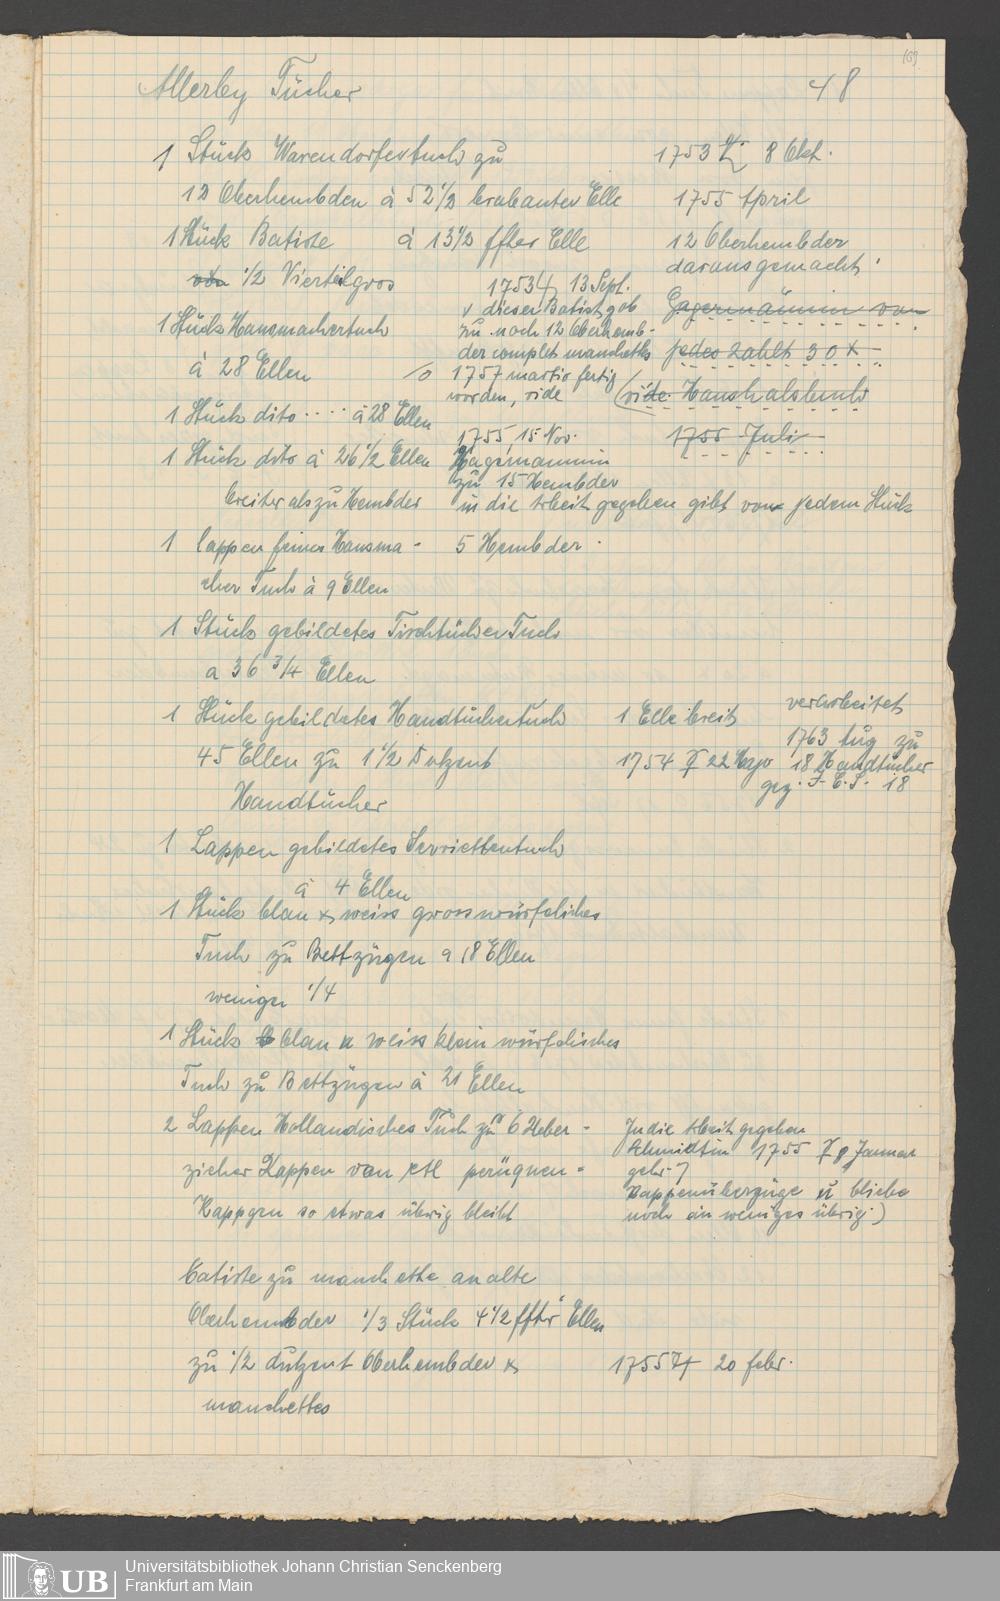 (69)
48
Allerley Tücher
1 Stück Warendorfertuch zu
1753 8 Okt.
12 Oberhembden à 52 1/2 brabanter Elle
1755 April
1 Stück Batiste à 13 1/2 ffter Elle
12 Oberhembder
daraus gemacht
von 1/2 Viertelgros
1753 13 Sept.
v dieser Batist gab
zu noch 12 Oberhemb-
der complet manchetts
1757 martio fertig
worden, vide
Hagermännin von
jedes zahlt 30 x
(vide Haushalsbuch
1755 Juli
1 Stück Hausmachertuch
à 28 Ellen
1 Stück dito .... à 28 Ellen
1755, 15 Nov.
1 Stück dito à 26 1/2 Ellen
Hagemannin
zu 15 Hembder
breiter als zu Hembder
in die Arbeit gegeben gibt von jedem Stück
1 lappen feines Hausma-
5 Hembder.
cher Tuch à 9 Ellen
1 Stück gebildetes Tischtücher Tuch
a 36 3/4 Ellen
1 Stück gebildetes Handtüchertuch
1 Elle breit
verarbeitet
45 Ellen zu 1 1/2 Dutzent
1754 22 Mayo
1763 Aug zu
18 Handtücher
gez. F. C. S. 18
Handtücher
1 Lappen gebildetes Serviettentuch
à 4 Ellen
1 Stück blau & weiss grosswürfeliches
Tuch zu Bettzügen a 18 Ellen
weniger 1/4
1 Stück blau u weiss kleinwürfeliches
Tuch zu Bettzügen à 21 Ellen
2 Lappen Holländisches Tuch zu 6 Ueber-
zieher Kappen von etl perüquen-
Kappgen so etwas übrig bleibt
In die Arbeit gegeben
Schmidtin 1755 8 Januar
gehr 7
Kappenüberzüge u bliebe
noch ein weniges übrig.)
batiste zu manchette an alte
Oberhembder 1/3 Stück 4 1/2 ffter Ellen
zu 1/2 dutzent Oberhembder &
1755 20 febr.
manchettes
UB
Universitätsbibliothek Johann Christian Senckenberg
Frankfurt am Main